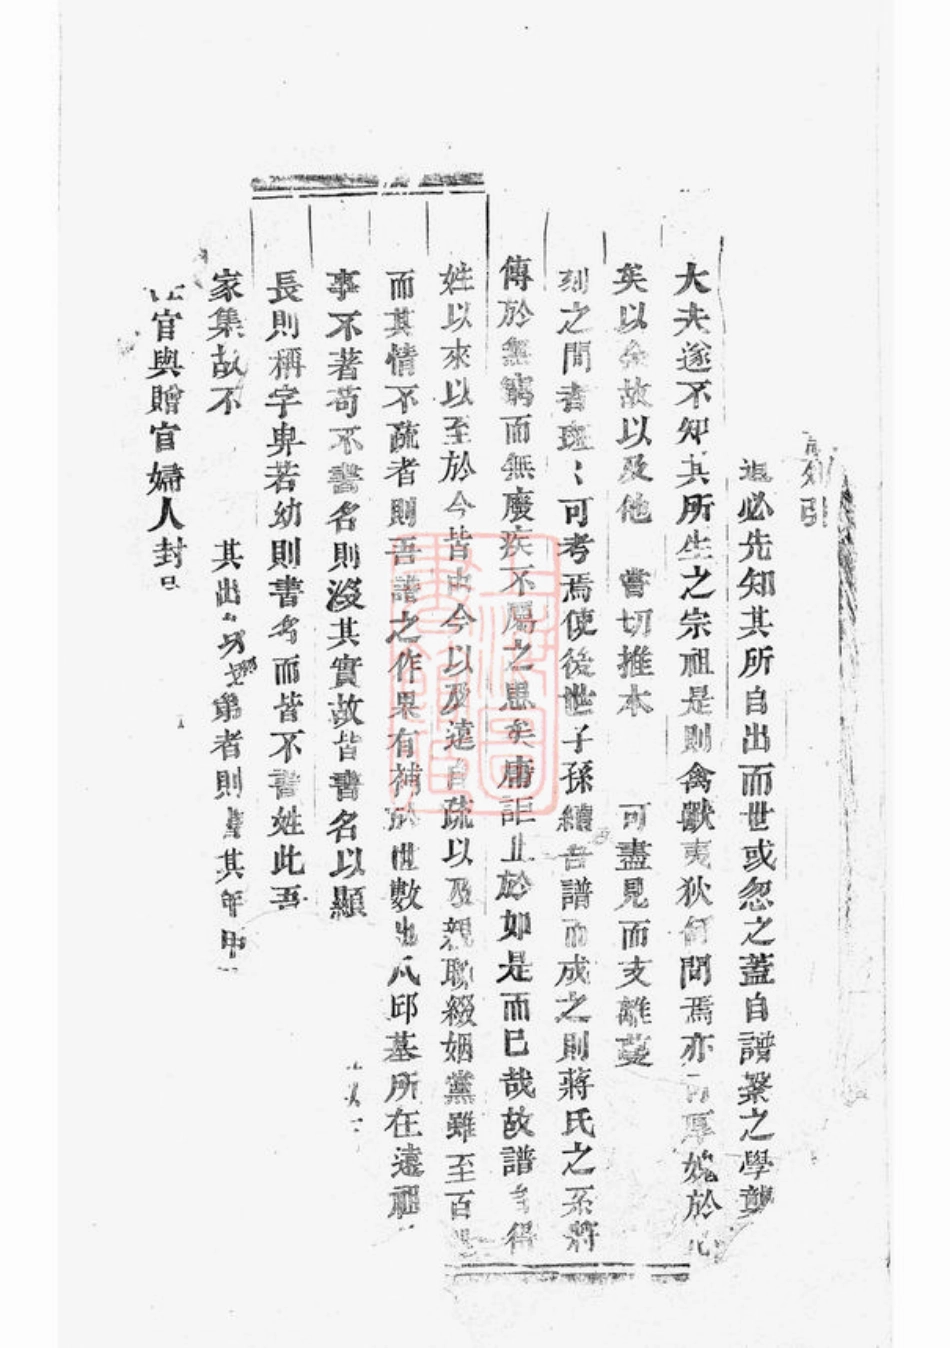 引
必先知其所自出而世或忽之蓋自譜系之學
大夫遂不知其所生之宗祖是則禽獸夷狄何間焉亦厚媿於
矣以余故以及他嘗切推本可盡見而支離蔓
刻之間者斑〻可考焉使後世子孫續吾譜而成之則蔣氏之系將
傳於無窮而無廢疾不屬之患矣庸詎止於如是而已哉故譜得
姓以來以至於今皆由今以及遠自疏以及親聯綴姻黨雖至百
而其情不疏者則吾譜之作果有補於世數也凡邱墓所在遠祖
事不著苟不書名則沒其實故皆書名以顯
長則稱字卑若幼則書名而皆不書姓此吾
家集故不其出者則書其年甲
官與贈官婦人封
上海圖書館藏